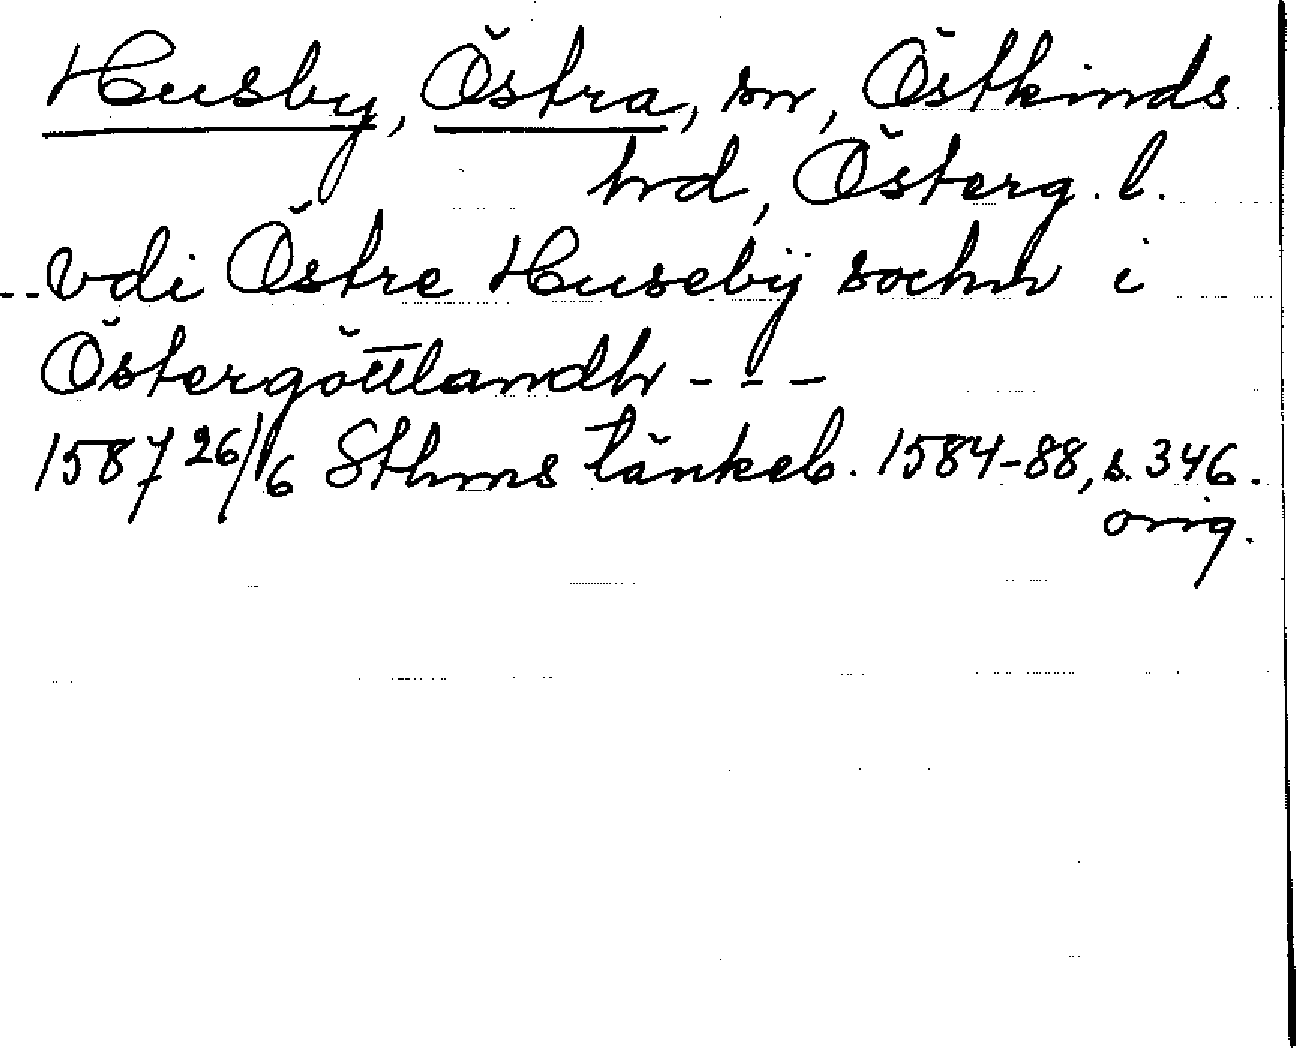 Husby, Östra, sn, Östkinds
hrd, Österg. l.
--vdi Östre Husebÿ sochn i
Östergöttlandh ---
1587 26/6 Sthms tänkeb. 1584-88, s. 346.
orig.